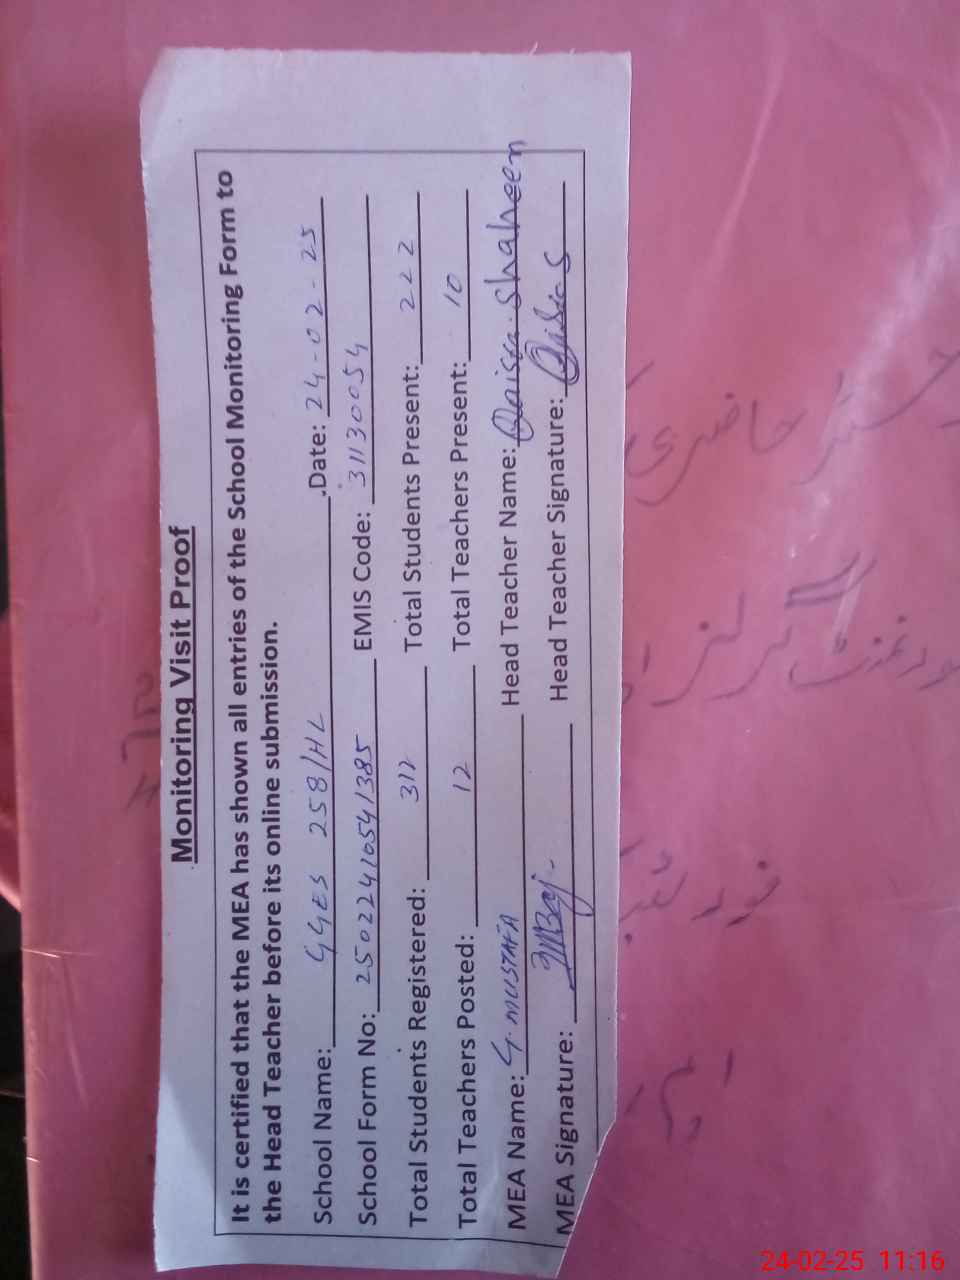 Monitoring Visit Proof
It is certified that the MEA has shown all entries of the School Monitoring Form to
the Head Teacher before its online submission.
School Name: GGES 258/HL .Date: 24-02-25
School Form No: 25022410541385 EMIS Code: 31130054
Total Students Registered: 312 Total Students Present: 222
Total Teachers Posted: 12 Total Teachers Present: 10
MEA Name: G. MUSTAFA Head Teacher Name: Qaisra shaheen
MEA Signature: Head Teacher Signature:
حاضری
گرلز
24-02-25 11:16